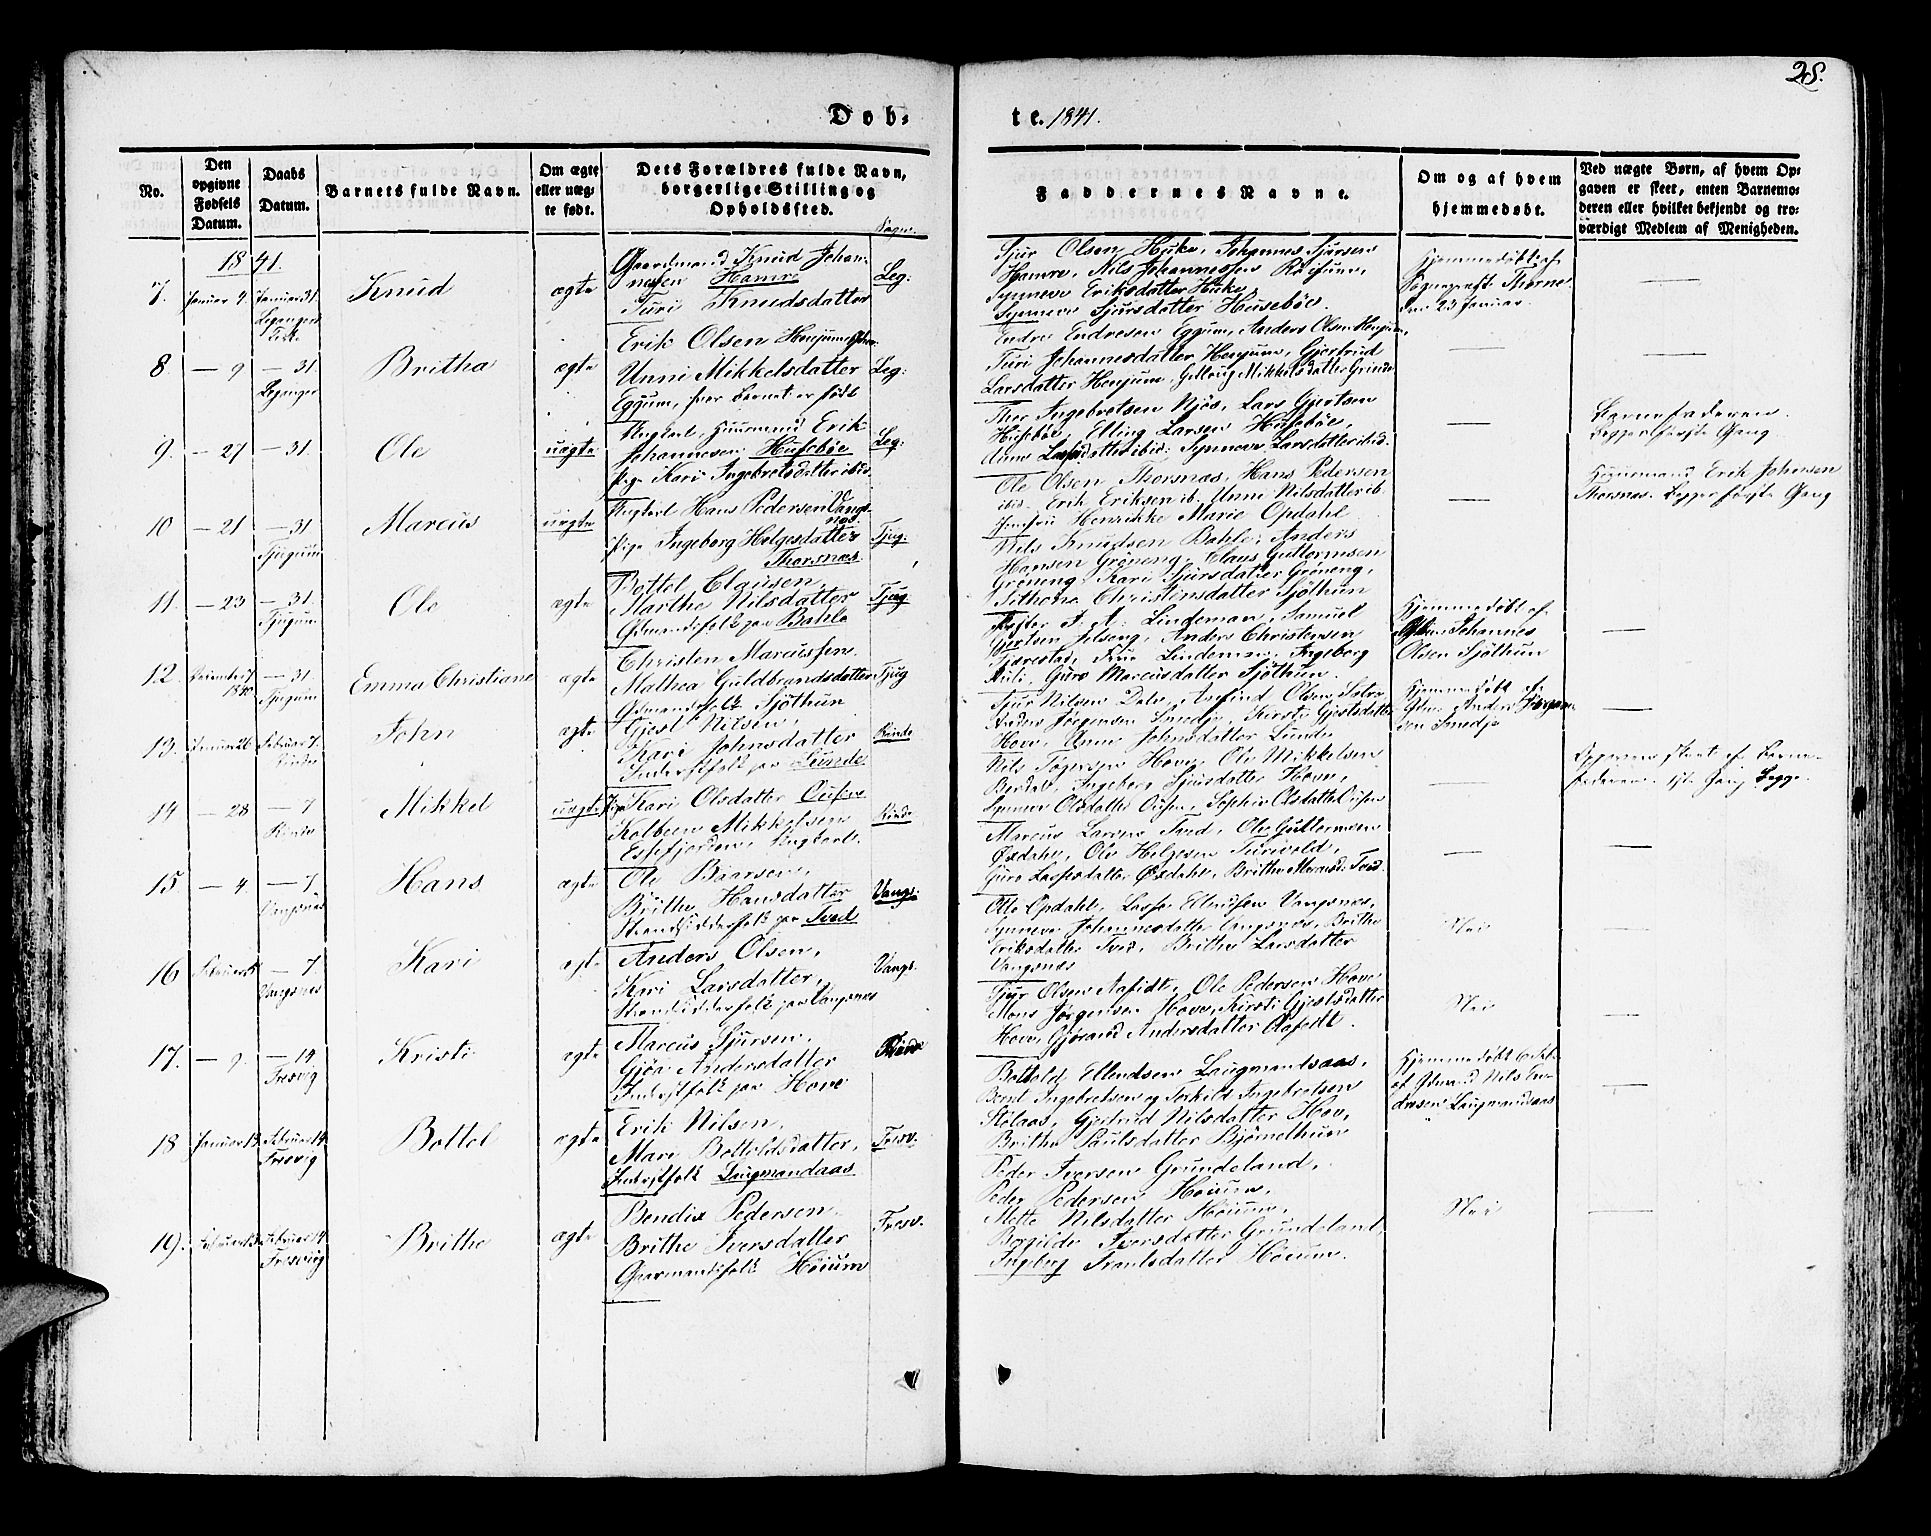 28.
Døb-
te. 1841.
No.
Den opgivne Fødsels Datum.
Daabs Datum.
Barnets fulde Navn.
Om ægte eller uægte født.
Dets Forældres fulde Navn, borgerlige Stilling og Opholdsfted.
Sogn.
Faddernes Navne.
Om og af hvem hjemmedøbt.
Ved uægte Børn, af hvem Opgaven er skeet, enten Barnemoderen eller hvilket bekjendt og troværdigt Medlem af Menigheden.
1841.
7. Januar 9 Januar 31 Leganger Kirke
Knud
ægte
Gaardmand Knud Johannessen Hamre
Turi Knudsdatter
Leg:
Sjur Olsen Huke, Johannes Sjursen
Hamre, Nils Johannessen
Synneve Eriksdatter Huke,
Synneve Sjursdatter Husebøe.
Hjemmedøbt af
Thorne
den 23 Januar.
8. — 9 — 31. Leganger
Britha
ægte
Erik Olsen Henjum
Unni Mikkelsdatter
Eggum, hvor Barnet er født
Leg:
Endre Endresen Eggum, Anders Olsen Henjum,
Turi Johannesdatter Henjum, Gjertrud
Larsdatter Henjum, Mikkelsdatter Grinde
9. — 27 — 31.
Ole
uægte
Ungkarl, Huusmand Erik
Johannesen Husebøe
Pige Kari Ingebretsdatter ibid
Leg:
Thor Ingebretsen Njøs, Lars Gjertsen
Husebøe, Elling Larsen Husebøe,
Anne Larsdatter ibid: Synneve Larsdatter ibid.
Barnefaderen.
Begges første Gang
10 — 21 — 31 Tjugum
Marcus
uægte
Ungkarl Hans Pedersen Vangsnæs
Pige Ingeborg Helgesdatter
Thorsnæs
Tjug:
Ole Olsen Thorsnæs, Hans Pedersen
ibid. Erik Eriksen ib. Unni Nilsdatter ib.
Jomfru Henrikke Marie Opdahl
Huusmand Erik Johnsen
Thorsnæs. Begges første Gang
11. — 23 — 31. Tjugum
Ole
ægte
Bottol Clausen,
Marthe Nilsdatter
Gdmandsfolk paa Bahle
Tjug:
Nils Knudsen Bahle, Anders
Hansen Grøneng, Claus Guttormsen
Grøneng, Kari Sjursdatter Grøneng,
Christensdatter Sjøthun
12. 1840 — 31. Tjugum
Emma Christiane
ægte
Christen Marcussen
Mathea Guldbrandsdatter
Gdmandsfolk Sjøthun
Tjug
Lindeman, Samuel
Gjertsen, Anders Christensen
Tjærestad, Frue Lindeman, Ingeborg
Guro Marcusdatter Sjøthun.
Hjemmedøbt af
Johannes
Olsen Sjøthun
13. Januar 26 Februar 7. Rinde
John
ægte
Gjest Nilsen,
Kari Johnsdatter
Inderstfolk paa Lunde
Rinde
Sjur Nilsen Dale, Arefind Olsen
Anders Jørgensen Smedje, Kirsti Gjestsdatter
Hove, Anne Johnsdatter Lunde
Hjemmedøbt af
Gdm. Anders Jørgensen Smedje
14 — 28 — 7 Rinde
Mikkel
uægte
Pige Kari Olsdatter
Kolbeen Mikkelsen
Essefjorden, Ungkarl.
Rinde
Nils Hove, Ole Mikkelsen
Berdal, Ingeborg Sjursdatter Hove,
Synneve Olsdatter, Sophie Olsdatter
Opgaven skeet af Barnefaderen. 1ste Gang Begge.
15 — 4 — 7 Vangsnæs
Hans
ægte
Ole Baarsen,
Brithe Hansdatter
Strandsidderfolk paa Tved
Vangs:
Marcus Larsen Tved, Ole Guttormsen
Øxdahl, Ole Helgesen Turvold,
Guro Lassesdatter Øxdahl, Brithe Tved.
16 Februar — 7. Vangsnæs
Kari
ægte
Anders Olsen,
Kari Larsdatter,
Strandsidderfolk paa Vangsnæs
Vangs.
Otto Opdahl, Lasse Ellendsen Vangsnæs,
Synneve Johannesdatter Vangsnæs, Brithe
Eriksdatter Tved, Brithe Larsdatter
Vangsnæs
Nei
17. — 9. — 14 Fresvig
Kristi
ægte
Marcus Sjursen,
Gjøa Andersdatter
Inderstfolk paa Hove
Rinde
Sjur Olsen Aafedt, Ole Pedersen Hove
Mons Jørgensen Hove, Kirsti Gjestsdatter
Hove, Gjørand Andersdatter Aafedt.
Nei
18 Januar 13. Februar 14. Fresvig
Bottol
ægte
Erik Nilsen,
Mari Bottoldsdatter,
Inderstfolk Laugmandaas
Fresv.
Bottold Ellendsen Laugmandsaas,
Bernt Ingebretsen og Torkild Ingebretsen
Stølaas, Gjertrud Nilsdatter Hov,
Brithe Paulsdatter Bjørnethun
Hjemmedøbt 6 Feb.
af Gdmand Nils Endresen Laugmandsaas
19. Februar 13. Februar 14. Fresvig
Brithe
ægte
Bendix Pedersen
Brithe Iversdatter
Gaarmandsfolk Høium
Fresv.
Peder Iversen Grundeland,
Peder Pedersen Høium,
Mette Nilsdatter Høium,
Borgilde Iversdatter Grundeland,
Ingeborg Frantsdatter Høium.
Nei